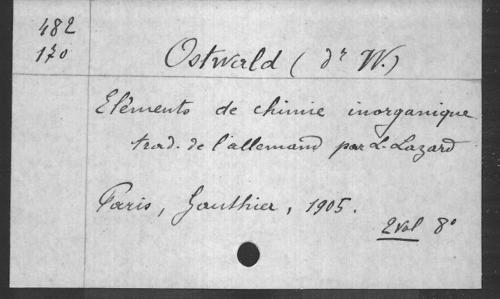 482
170
Ostwald (dr W.)
Eléments de chimie inorganique
trad. de l'allemand par L. Lazard
Paris, Gauthier, 1905.
2 vol 8º